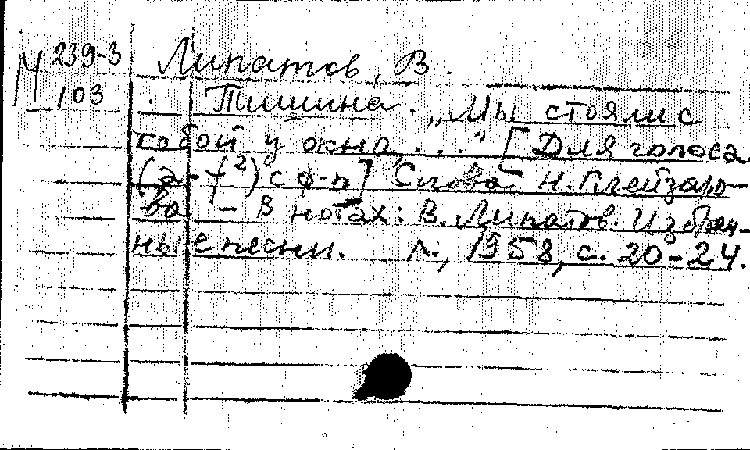 М 239-3
103
Липатов, В.
Тишина. „Мы стояли с
тобой у окна..." [Для голоса
(a-f²) с ф-п] Слова Н. Глейзаро-
ва. – В нотах: В. Липатов. Избран-
ные песни. Л., 1958, с. 20-24.